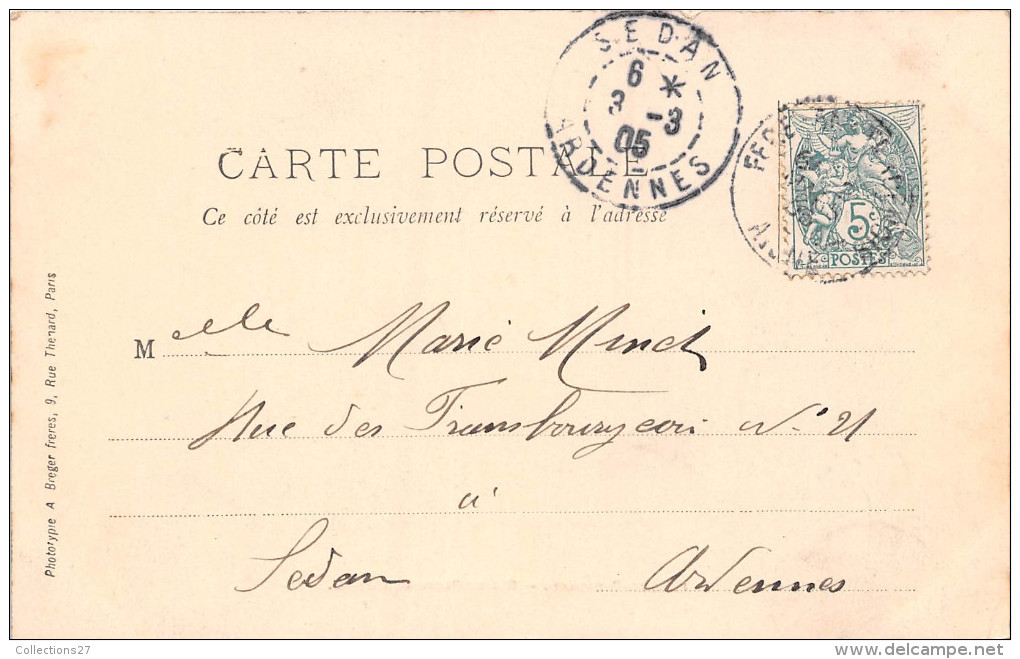 SEDAN
6 *
3 -3
05
ARDENNES
5c
POSTES
CARTE POSTALE
Ce côté est exclusivement réservé à l'adresse
Melle Marie
Rue des N° 21
à
Sedan Ardennes
Phototypie A Breger freres, 9, Rue Thenard, Paris
Collections27
www.delcampe.net